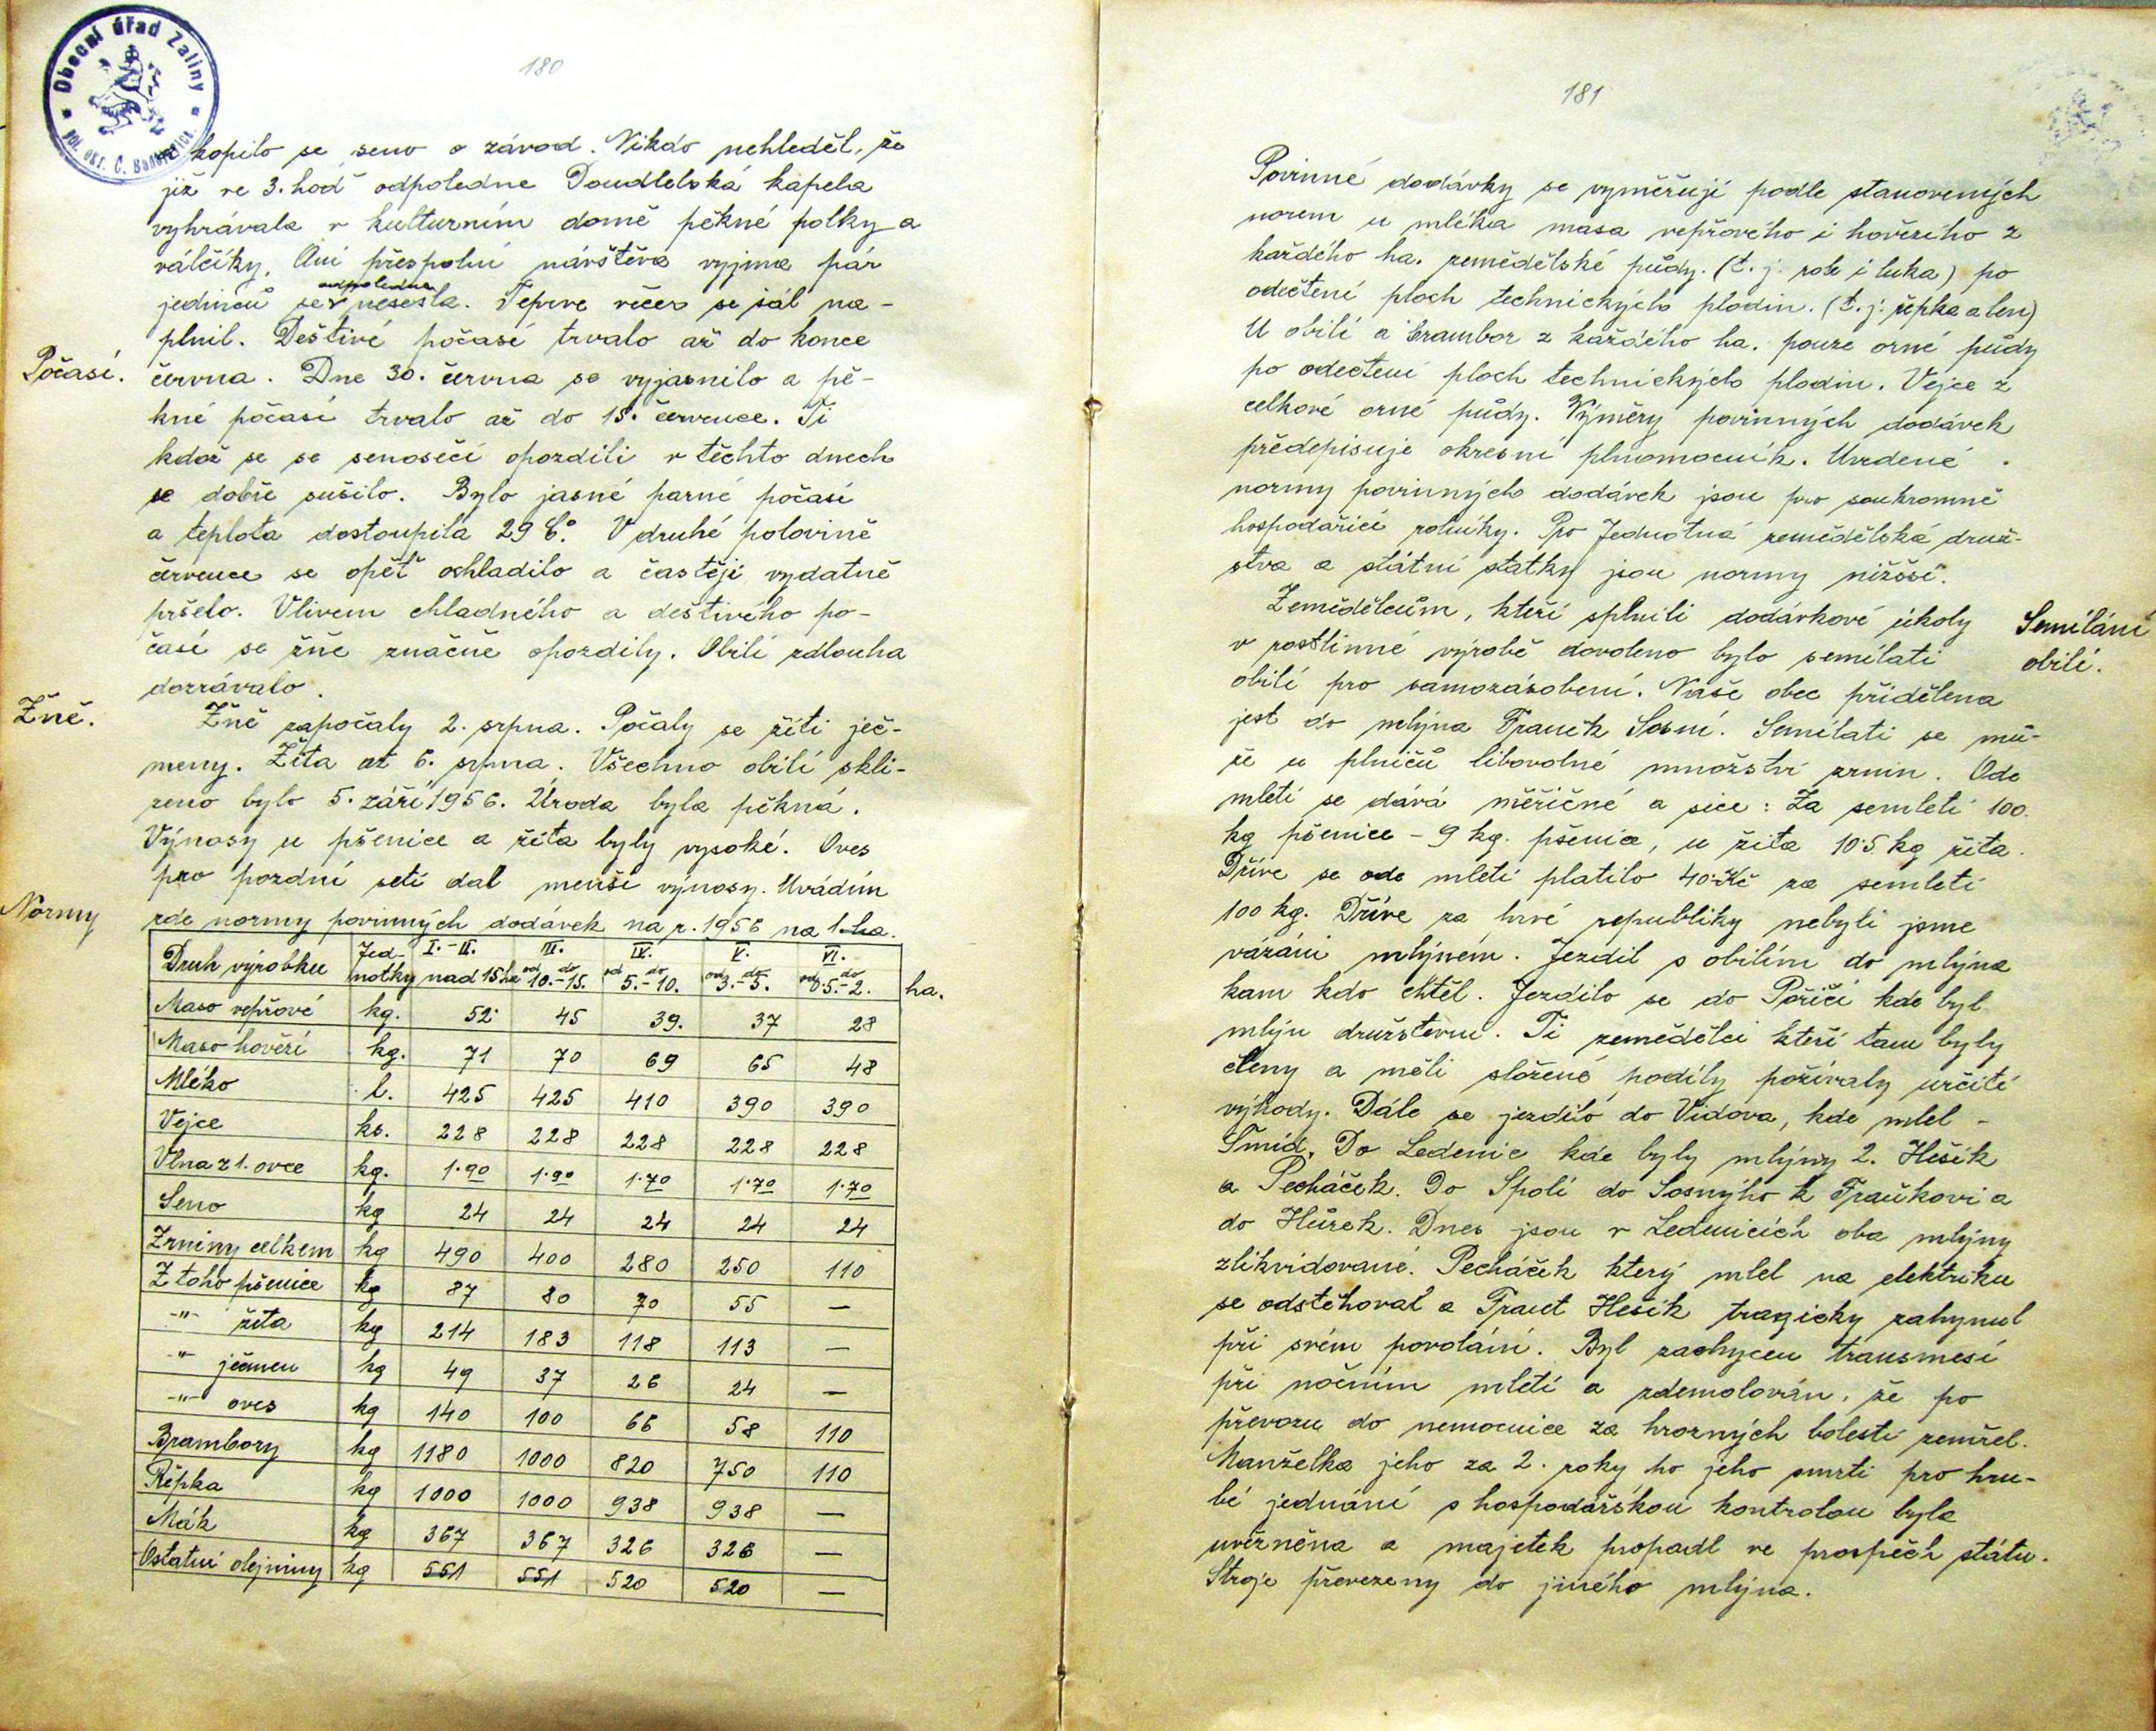 Obecní úřad Zaliny
pol. okr. Č. Budějovice
180
a kopilo se seno o závod. Nikdo nehleděl, že
již ve 3. hod odpoledne Doudlebská kapela
vyhrávala v kulturním domě pěkné polky a
válčíky. Ani přespolní návštěva vyjma pár
jedinců se odpoledne nesešla. Teprve večer se sál na-
plnil. Deštivé počasí trvalo až do konce
Počasí. června. Dne 30. června se vyjasnilo a pě-
kné počasí trvalo až do 15. července. Ti
kdož se se senosečí opozdili v těchto dnech
se dobře sušilo. Bylo jasné parné počasí
a teplota dostoupila 29 C°. V druhé polovině
července se opěť ochladilo a častěji vydatně
pršelo. Vlivem chladného a deštivého po-
časí se žně značně opozdily. Obilí zdlouha
dozrávalo.
Žně. Žně započaly 2. srpna. Počaly se žíti ječ-
meny. Žita až 6. srpna. Všechno obilí skli-
zeno bylo 5. září 1956. Úroda byla pěkná.
Výnosy u pšenice a žita byly vysoké. Oves
pro pozdní setí dal menší výnosy. Uvádím
Normy zde normy povinných dodávek na r. 1956 na 1 ha.
Druh výrobku Jed-notky I.-II. nad 15 ha III. od 10.- do 15. IV. od 5.- do 10. V. od 3.- do 5. VI. od 0.5.- do 2. ha.
Maso vepřové kg. 52 45 39. 37 28
Maso hovězí kg. 71 70 69 65 48
Mléko l. 425 425 410 390 390
Vejce ks. 228 228 228 228 228
Vlna z 1. ovce kg. 1·90 1·90 1·70 1·70 1·70
Seno kg 24 24 24 24 24
Zrniny celkem kg 490 400 280 250 110
Z toho pšenice kg 87 80 70 55 —
-"- žita kg 214 183 118 113 —
-"- ječmen kg 49 37 26 24 —
-"- oves kg 140 100 66 58 110
Brambory kg 1180 1000 820 750 110
Řepka kg 1000 1000 938 938 —
Mák kg 367 367 326 326 —
Ostatní olejniny kg 551 551 520 520 —
181
Povinné dodávky se vyměřují podle stanovených
norem u mléka masa vepřového i hovězího z
každého ha. zemědělské půdy. (t. j. role i luka) po
odečtení ploch technických plodin. (t. j. řepka a len)
U obilí a brambor z každého ha. pouze orné půdy
po odečtení ploch technických plodin. Vejce z
celkové orné půdy. Výměry povinných dodávek
předepisuje okresní plnomocník. Uvedené
normy povinných dodávek jsou pro soukromně
hospodařící rolníky. Pro Jednotná zemědělská druž-
stva a státní statky jsou normy nižšší.
Zemědělcům, kteří splnili dodávkové úkoly Semílání
v rostlinné výrobě dovoleno bylo semílati obilí.
obilí pro samozásobení. Naše obec přidělena
jest do mlýna Franěk Sosní. Semílati se mů-
že u plničů libovolné množství zrnin. Ode
mletí se dává měřičné a sice: Za semletí 100.
kg pšenice - 9 kg. pšenice, u žita 10·5 kg žita.
Dříve se ode mletí platilo 40·Kč za semletí
100 kg. Dříve za prvé republiky nebyli jsme
vázáni mlýnem. Jezdil s obilím do mlýna
kam kdo chtěl. Jezdilo se do Poříčí kde byl
mlýn družstevní. Ti zemědělci kteří tam byly
členy a měli složené podíly požívaly určité
výhody. Dále se jezdilo do Vidova, kde mlel -
Šmíd. Do Ledenic kde byly mlýny 2. Hešík
a Pecháček. Do Spolí do Sosnýho k Fraňkovi a
do Hůrek. Dnes jsou v Ledenicích oba mlýny
zlikvidované. Pecháček který mlel na elektriku
se odstěhoval a Frant Hešík tragicky zahynul
při svém povolání. Byl zachycen transmesí
při nočním mletí a zdemolován, že po
převozu do nemocnice za hrozných bolestí zemřel.
Manželka jeho za 2. roky po jeho smrti pro hru-
bé jednání s hospodářskou kontrolou byla
uvězněna a majetek propadl ve prospěch státu.
Stroje převezeny do jiného mlýna.